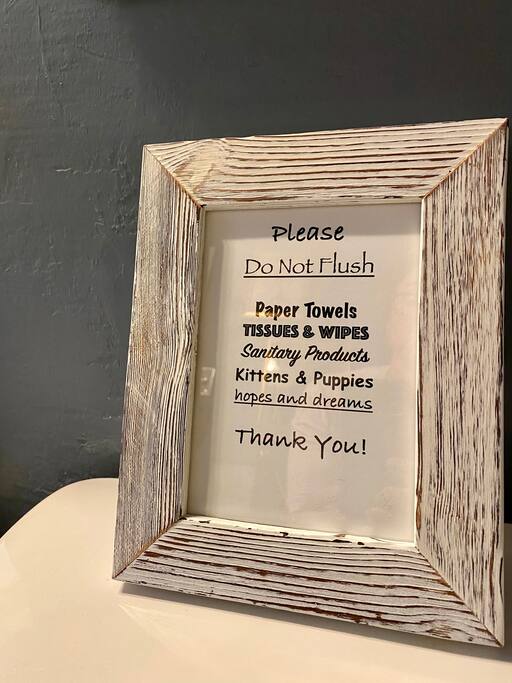 Please
Do Not Flush
Paper Towels
TISSUES & WIPES
Sanitary Products
Kittens & Puppies
hopes and dreams
Thank You!